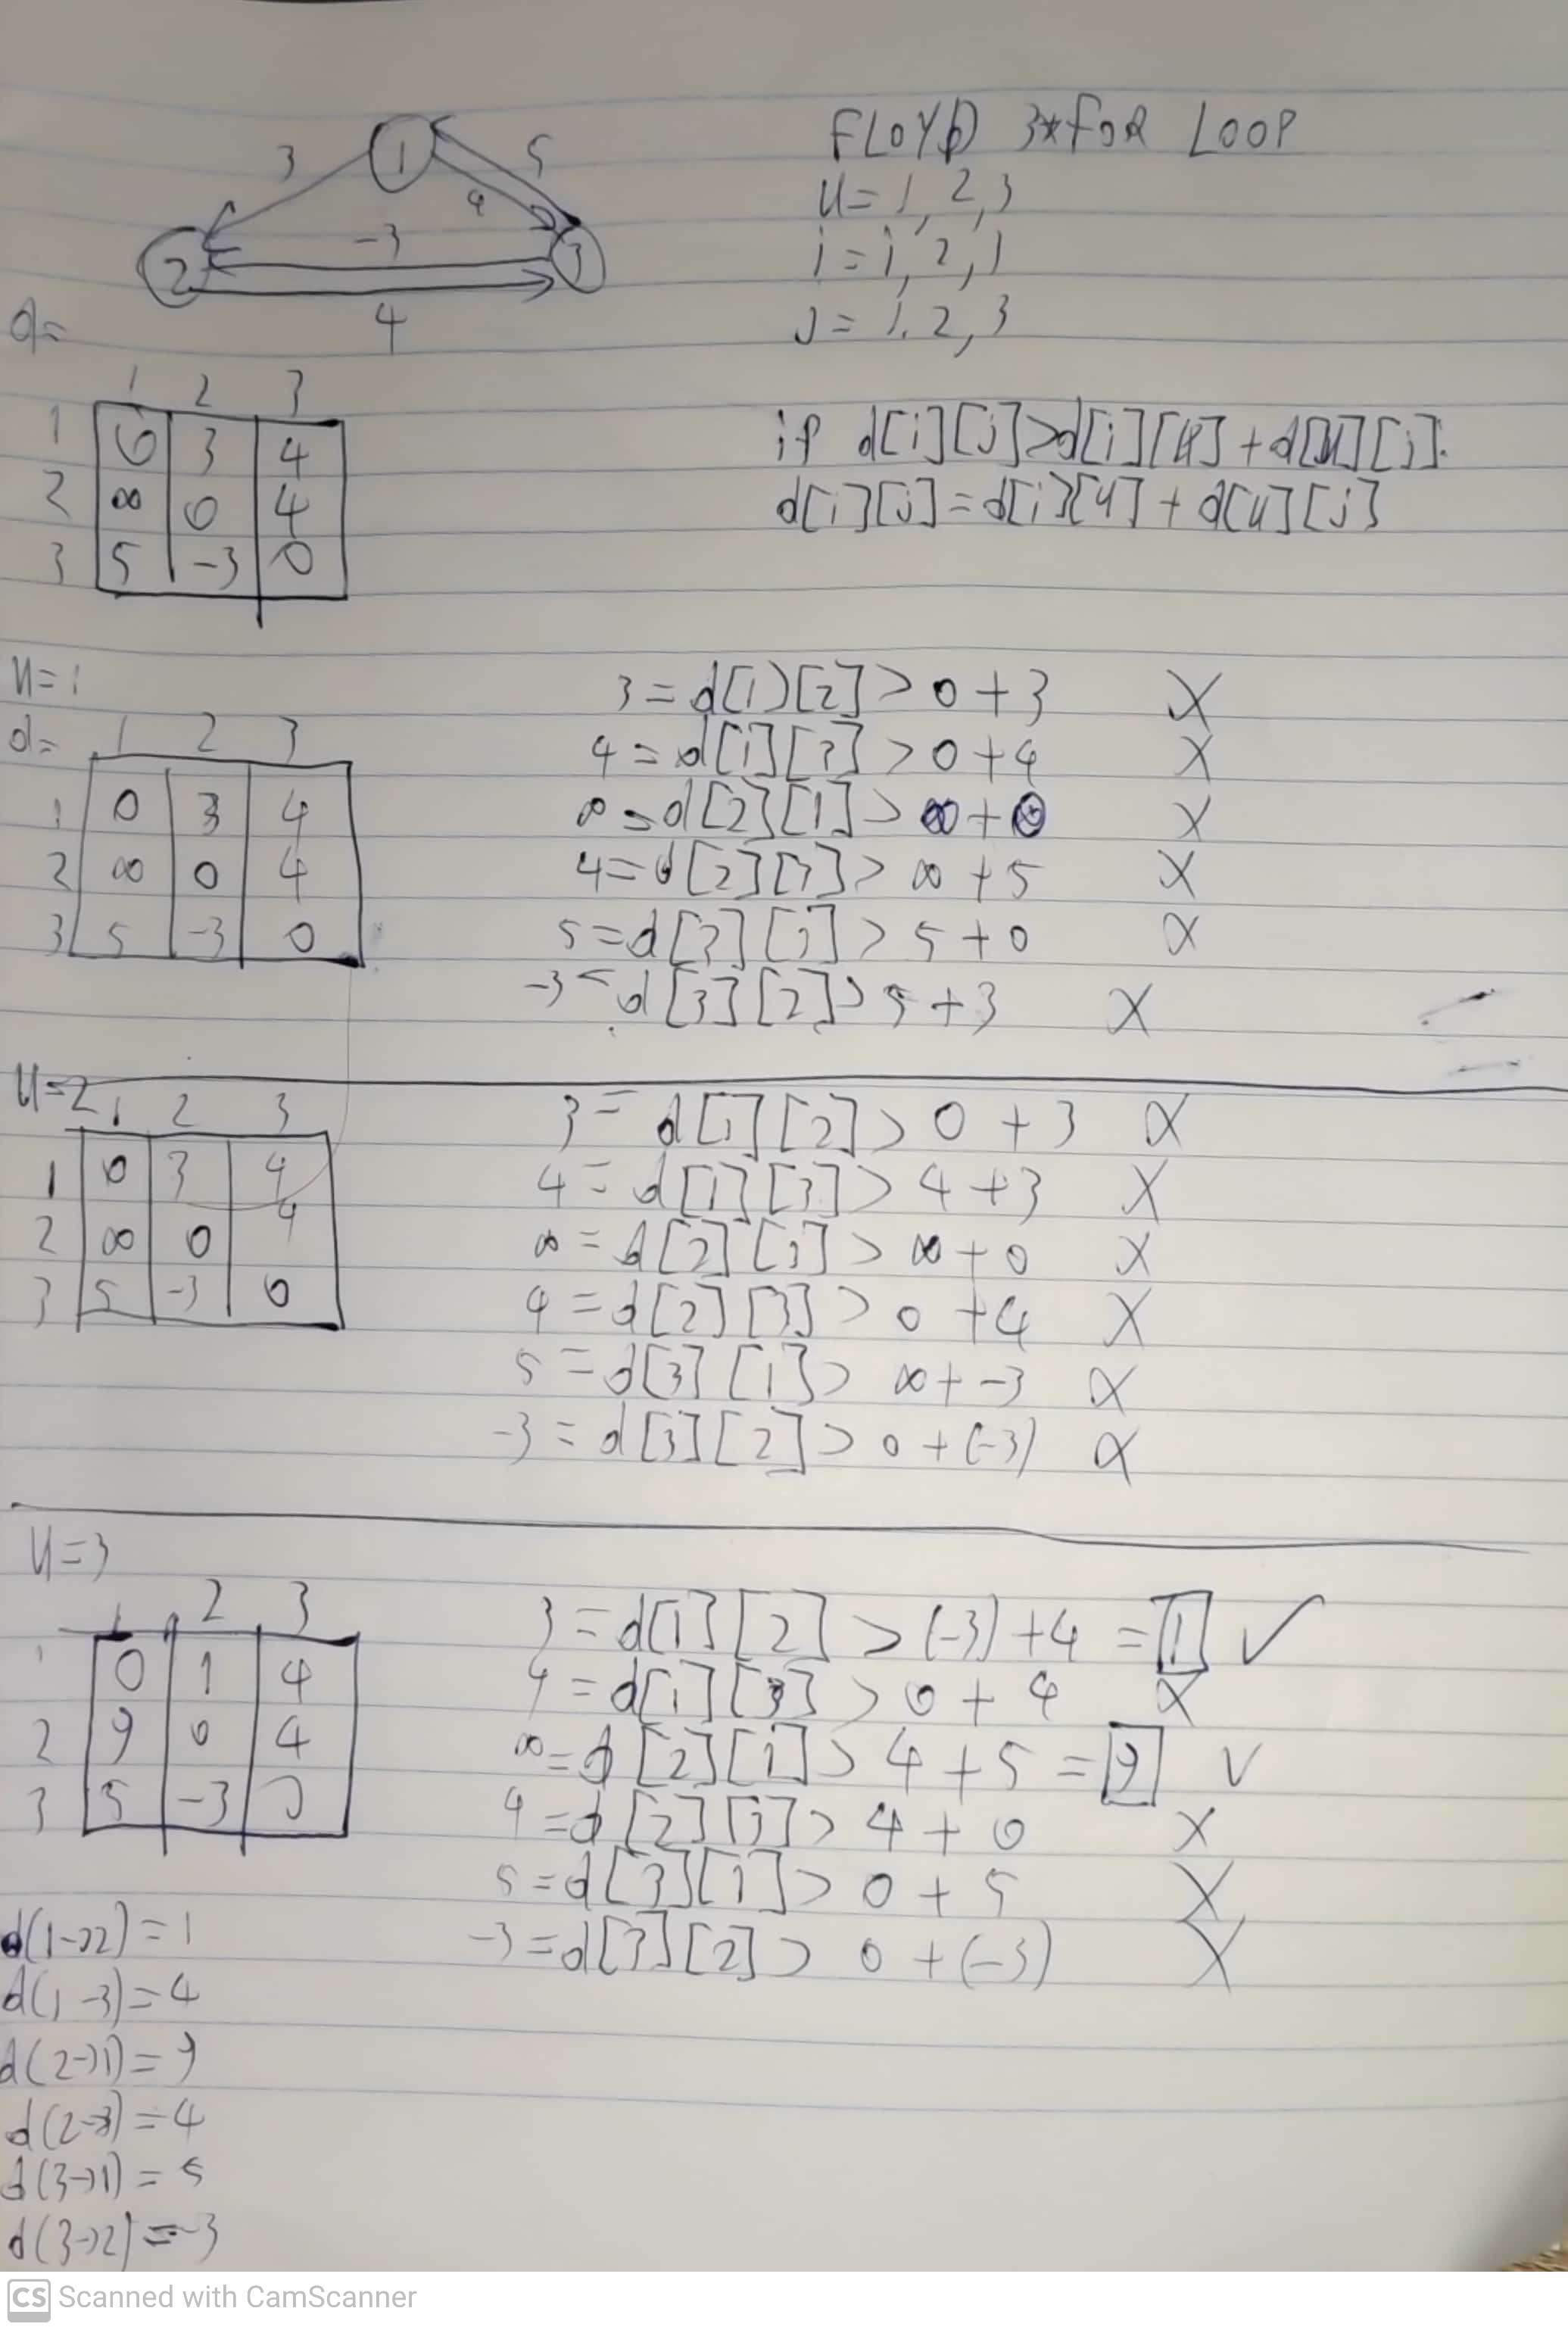 FLOYD 3*FOR LOOP
U=1,2,3
i=1,2,
J=1.2,3
1
3
5
4
2
-3
3
4
d=
1 2 3
1 0 3 4
2 ∞ 0 4
3 5 -3 0
if d[i][j]>d[i][u]+d[u][j].
d[i][j]=d[i][u]+d[u][j]
U=1
d= 1 2 3
1 0 3 4
2 ∞ 0 4
3 5 -3 0
3=d[1][2]>0+3 X
4=d[1][3]>0+4 X
∞=d[2][1]>∞+0 X
4=d[2][3]>∞+5 X
5=d[3][1]>5+0 X
-3=d[3][2]>5+3 X
U=2
1 2 3
1 0 3 4
2 ∞ 0 4
3 5 -3 0
3=d[1][2]>0+3 X
4=d[1][3]>4+3 X
∞=d[2][1]>∞+0 X
4=d[2][3]>0+4 X
5=d[3][1]>∞+-3 X
-3=d[3][2]>0+(-3) X
U=3
1 2 3
1 0 1 4
2 9 0 4
3 5 -3 0
3=d[1][2]>(-3)+4=1 ✓
4=d[1][3]>0+4 X
∞=d[2][1]>4+5=9 ✓
4=d[2][3]>4+0 X
5=d[3][1]>0+5 X
-3=d[3][2]>0+(-3) X
d(1→2)=1
d(1-3)=4
d(2→1)=9
d(2→3)=4
d(3→1)=5
d(3→2)=-3
CS Scanned with CamScanner